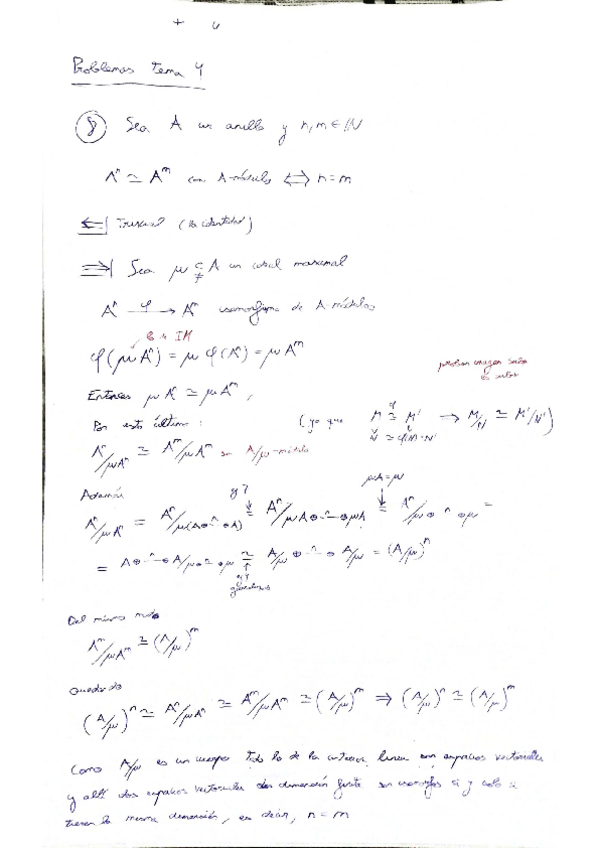 Problemas tema 4
⑧ Sea A un anillo y n, m ∈ ℕ
Aⁿ ≃ Aᵐ como A-módulos ⟺ n = m
⟸| Trivial (la identidad)
⟹| Sea μ ⊊ A un ideal maximal
Aⁿ —φ→ Aᵐ isomorfismo de A-módulos
φ(μAⁿ) = μ φ(Aⁿ) = μAᵐ
Entonces μAⁿ ≃ μAᵐ,
Por esto último: (ya que M ≃ M' → M/N ≃ M'/N')
Aⁿ/μAⁿ ≃ Aᵐ/μAᵐ son A/μ-módulo
μA = μ
Además
Aⁿ/μAⁿ = Aⁿ/μ(A⊕ⁿ⊕A) = Aⁿ/μA⊕ⁿ⊕μA = Aⁿ/μ⊕ⁿ⊕μ =
= A⊕ⁿ⊕A/μ⊕ⁿ⊕μ ≃ A/μ⊕ⁿ⊕A/μ = (A/μ)ⁿ
Del mismo modo
Aᵐ/μAᵐ ≃ (A/μ)ᵐ
Quedando
(A/μ)ⁿ ≃ Aⁿ/μAⁿ ≃ Aᵐ/μAᵐ ≃ (A/μ)ᵐ ⟹ (A/μ)ⁿ ≃ (A/μ)ᵐ
Como A/μ es un cuerpo todo lo de la anterior línea son espacios vectoriales
y allí dos espacios vectoriales de dimensión finita son isomorfos si y solo si
tienen la misma dimensión, es decir, n = m